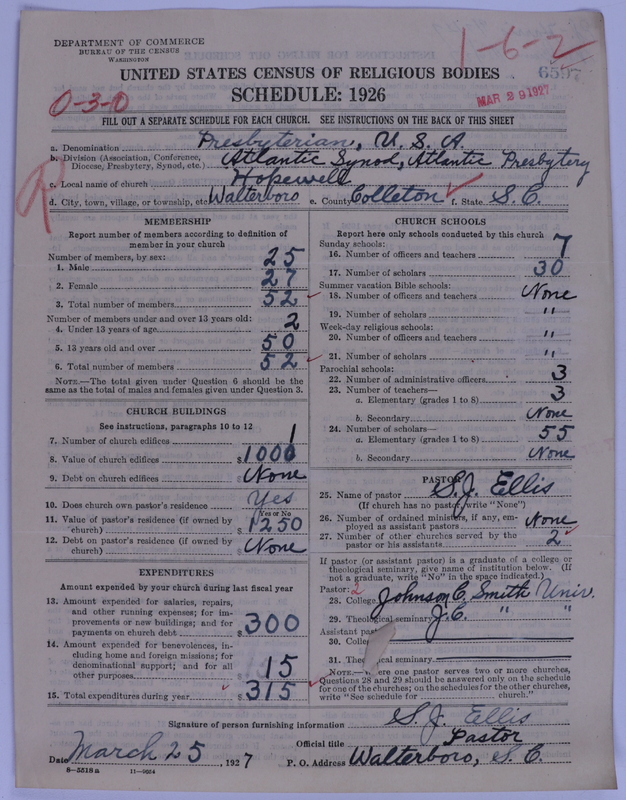 DEPARTMENT OF COMMERCE
BUREAU OF THE CENSUS
WASHINGTON
1-6-2
6597
UNITED STATES CENSUS OF RELIGIOUS BODIES
SCHEDULE: 1926
MAR 29 1927
0-3-0
FILL OUT A SEPARATE SCHEDULE FOR EACH CHURCH. SEE INSTRUCTIONS ON THE BACK OF THIS SHEET
a. Denomination Presbyterian, U.S.A.
b. Division (Association, Conference, Diocese, Presbytery, Synod, etc.) Atlantic Synod, Atlantic Presbytery
c. Local name of church Hopewell
R
d. City, town, village, or township, etc. Walterboro e. County Colleton f. State S.C.
MEMBERSHIP
Report number of members according to definition of
member in your church
Number of members, by sex:
1. Male 25
2. Female 27
3. Total number of members 52
Number of members under and over 13 years old:
4. Under 13 years of age 2
5. 13 years old and over 50
6. Total number of members 52
NOTE.—The total given under Question 6 should be the
same as the total of males and females given under Question 3.
CHURCH BUILDINGS
See instructions, paragraphs 10 to 12
7. Number of church edifices 1
8. Value of church edifices $1000
9. Debt on church edifices None
10. Does church own pastor's residence Yes
Yes or No
11. Value of pastor's residence (if owned by
church) $1250
12. Debt on pastor's residence (if owned by
church) None
EXPENDITURES
Amount expended by your church during last fiscal year
13. Amount expended for salaries, repairs,
and other running expenses; for im-
provements or new buildings; and for
payments on church debt $300
14. Amount expended for benevolences, in-
cluding home and foreign missions; for
denominational support; and for all
other purposes 15
15. Total expenditures during year $315
CHURCH SCHOOLS
Report here only schools conducted by this church
Sunday schools:
16. Number of officers and teachers 7
17. Number of scholars 30
Summer vacation Bible schools:
18. Number of officers and teachers None
19. Number of scholars "
Week-day religious schools:
20. Number of officers and teachers "
21. Number of scholars "
Parochial schools:
22. Number of administrative officers 3
23. Number of teachers—
a. Elementary (grades 1 to 8) 3
b. Secondary None
24. Number of scholars—
a. Elementary (grades 1 to 8) 55
b. Secondary None
PASTOR
25. Name of pastor S.J. Ellis
(If church has no pastor, write "None")
26. Number of ordained ministers, if any, em-
ployed as assistant pastors None
27. Number of other churches served by the
pastor or his assistants 2
If pastor (or assistant pastor) is a graduate of a college or
theological seminary, give name of institution below. (If
not a graduate, write "No" in the space indicated.)
Pastor: 2
28. College Johnson C. Smith Univ.
29. Theological seminary J.C. " "
Assistant past
30. Colle
31. Theological seminary
NOTE.—Where one pastor serves two or more churches,
Questions 28 and 29 should be answered only on the schedule
for one of the churches; on the schedules for the other churches,
write "See schedule for church."
Signature of person furnishing information S. J. Ellis
Official title Pastor
Date March 25, 1927 P. O. Address Walterboro, S.C.
8—5518a 11—9664